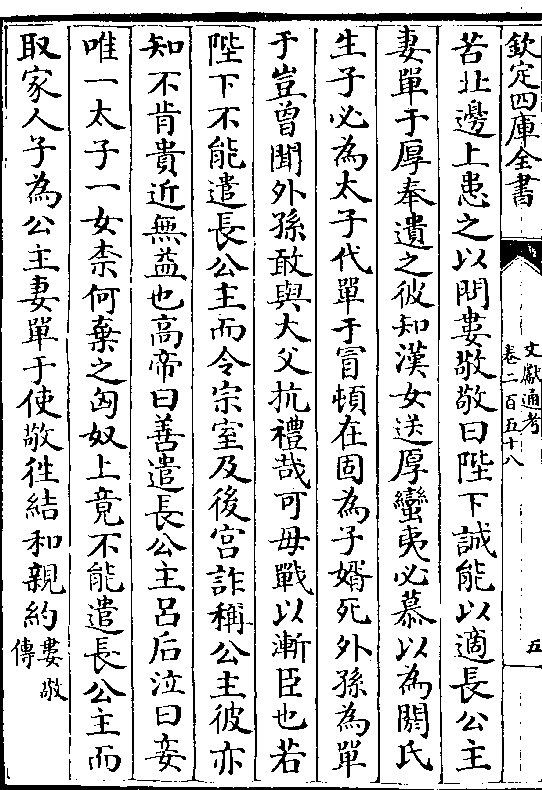 欽定四庫全書
文獻通考
卷二百五十八
五
苦北邊上患之以問婁敬敬曰陛下誠能以適長公主
妻單于厚奉遺之彼知漢女送厚蠻夷必慕以為閼氏
生子必為太子代單于冒頓在固為子婿死外孫為單
于豈曾聞外孫敢與大父抗禮哉可毋戰以漸臣也若
陛下不能遣長公主而令宗室及後宫詐稱公主彼亦
知不肯貴近無益也高帝曰善遣長公主呂后泣曰妾
唯一太子一女柰何棄之匈奴上竟不能遣長公主而
取家人子為公主妻單于使敬徃結和親約婁敬
傳